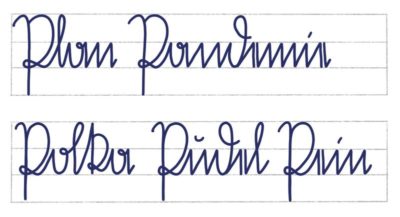 Plan Pandemie
Polka Pudel Pein